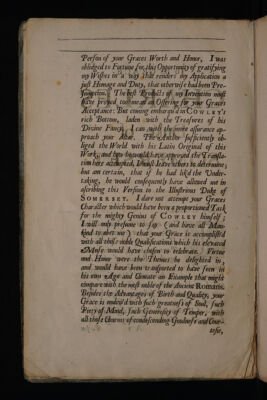 Person of your Graces Worth and Honor, I was
obliedged to Fortune for this Opportunity of gratifying
my Wishes in a way that renders my Application a
just Homage and Duty, that otherwise had been Pre-
sumption. The best Products of my Invention must
have proved too mean an Offering for your Graces
Acceptance: But coming embarqu'd in COWLEY's
rich Bottom, laden with the Treasures of his
Divine Fancy, I can with the more assurance ap-
proach your Altar. The Author sufficiently ob-
liged the World with his Latin Original of this
Work, and how he would have approved the Transla-
tion here attempted, I must leave others to determine;
but am certain, that if he had lik'd the Under-
taking, he would consequently have allowed me in
ascribing this Version to the Illustrious Duke of
SOMERSET. I dare not attempt your Graces
Character which would have been a proportioned Task
for the mighty Genius of COWLEY himself;
I will only presume to say (and have all Man-
kind to abet me) that your Grace is accomplished
with all those noble Qualifications which his elevated
Muse would have chosen to celebrate. Virtue
and Honor were the Themes he delighted in,
and would have been transported to have seen in
his own Age and Climate an Example that might
compare with the most noble of the Ancient Romans.
Besides the Advantages of Birth and Quality, your
Grace is endow'd with such greatness of Soul, such
Piety of Mind, such Generosity of Temper, with
all those Charms of condescending Goodness and Cour-
tesie,